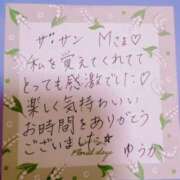 ザ・サン Mさま♡
私を覚えてくれてて
とっても感激でした♡
楽しく気持わいい
お時間をありがとう
ございました☆
Floral days
ゆうか